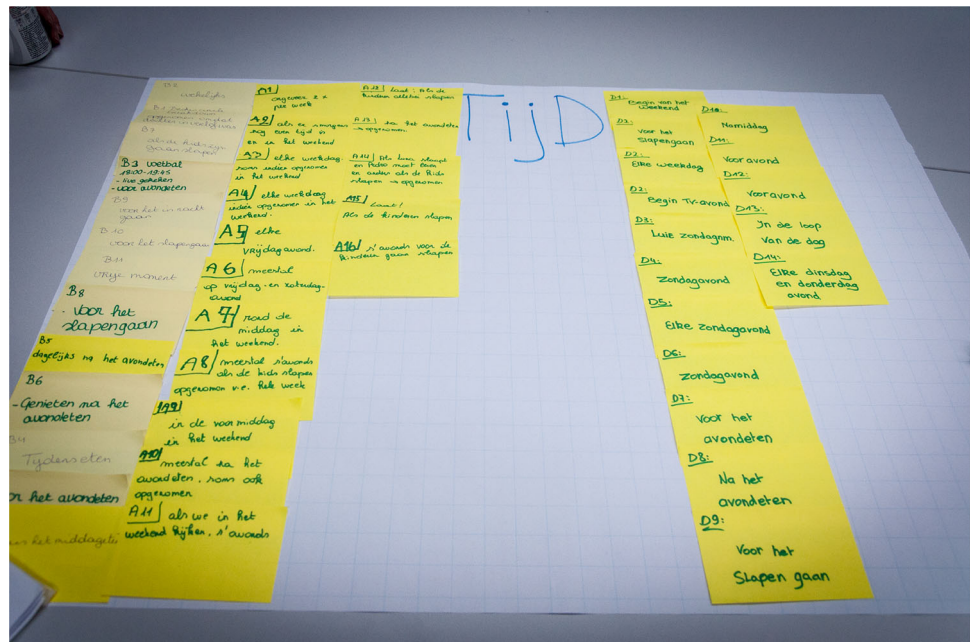 TijD
B2
wekelijks
B1
B3
als de kids zijn
gaan slapen
B3 voetbal
18:00-19:45
- live gekeken
- voor avondeten
B9
voor het in nacht
gaan
B10
voor het slapengaan
B11
vrije moment
B8
- voor het
slapengaan
B5
dagelijks na het avondeten
B6
- Genieten na het
avondeten
B4
Tijdens eten
het avondeten
het
A1
ongeveer 2 x
per week
A2 als er smorgens
nog even tijd is
en in het weekend
A3 elke weekdag.
soms ieder opgenomen
in het weekend
A4 elke weekdag
ieder opgenomen in het
weekend.
A5 elke
vrijdagavond.
A6 meestal
op vrijdag- en zaterdag-
avond
A7 rond de
middag in
het weekend.
A8 meestal s'avonds
als de kids slapen
opgenomen v.e. hele week
A9
in de voormiddag
in het weekend
A10
meestal na het
avondeten, soms ook
opgenomen
A11 als we in het
weekend kijken, s'avonds
A12 Laat! Als de
kinderen allebei slapen
A13 na het avondeten
→ opgenomen.
A14 Als Luca slaapt
en Pedro moet
en anders als de kids
slapen → opgenomen
A15 Laat!
Als de kinderen slapen
A16 s'avonds voor de
kinderen gaan slapen
D1:
Begin van het
weekend
D2:
voor het
slapengaan
D2:
Elke weekdag
D2:
Begin TV-avond
D3:
Luie zondagnm.
D4:
Zondagavond
D5:
Elke zondagavond
D6:
zondagavond
D7:
Voor het
avondeten
D8:
Na het
avondeten
D9:
Voor het
Slapen gaan
D10:
Namiddag
D11:
Vooravond
D12:
Vooravond
D13:
In de loop
van de dag
D14:
Elke dinsdag
en donderdag
avond